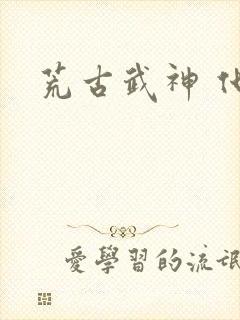 荒古武神
愛學習的流氓